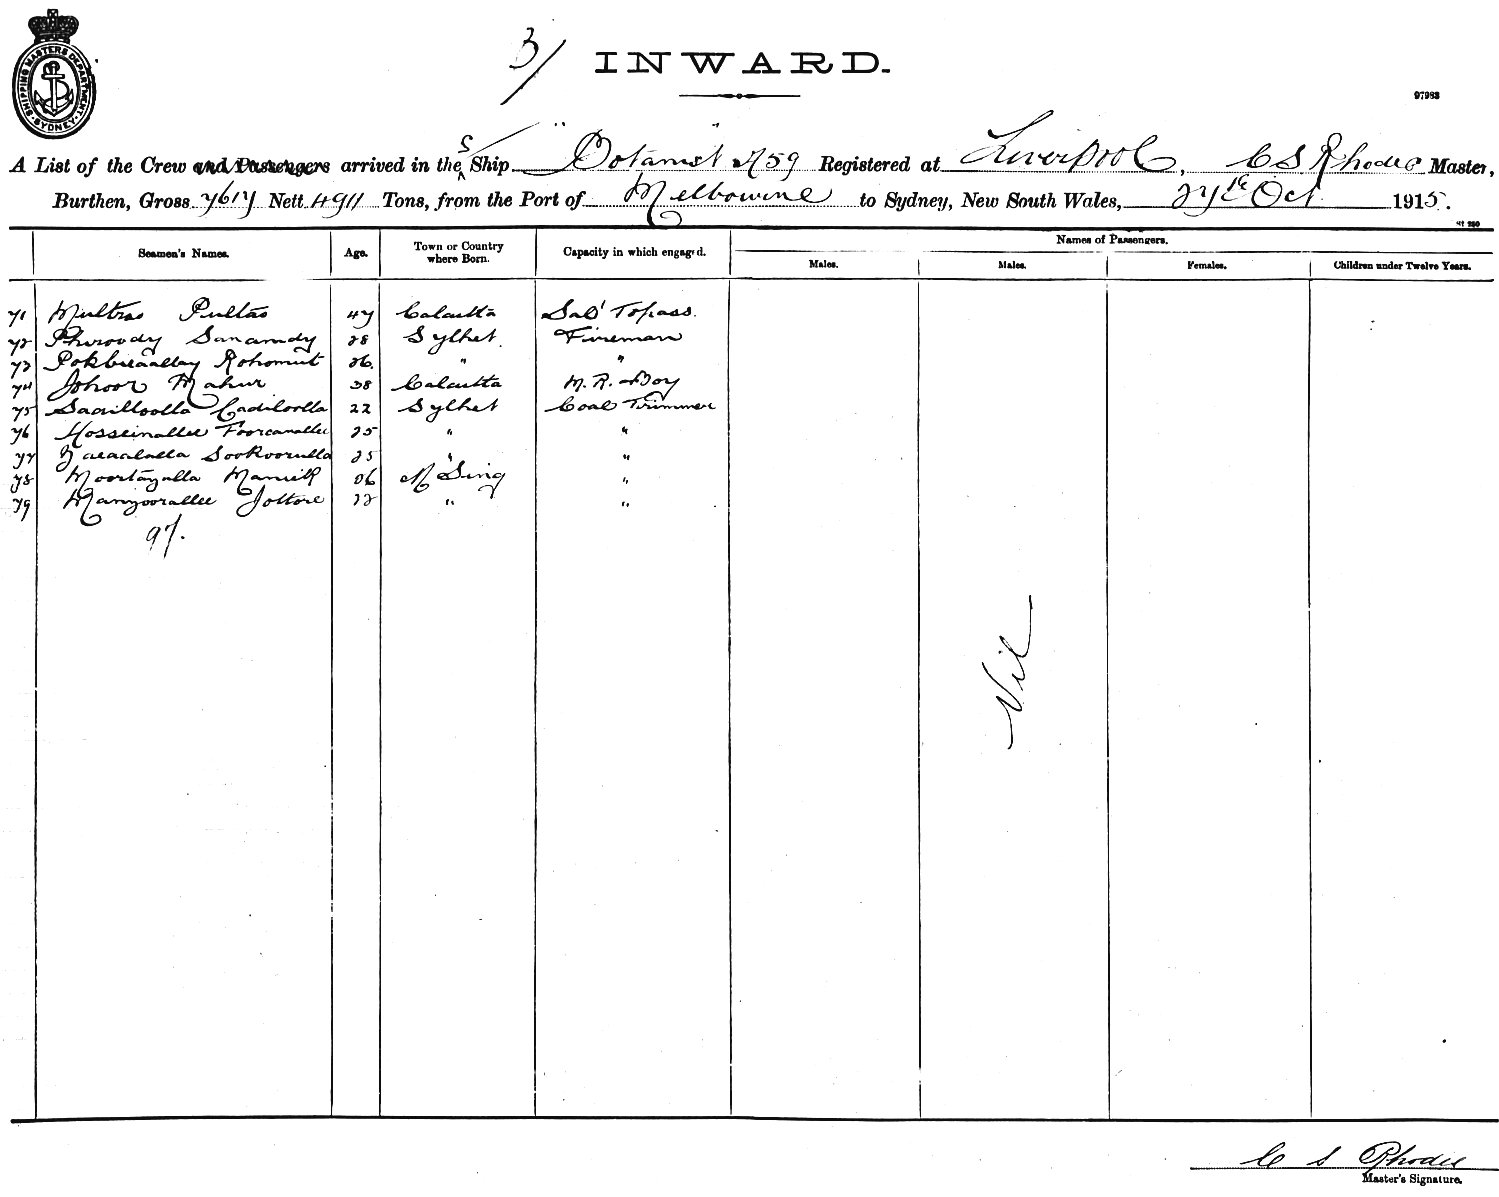 SHIPPING MASTERS DEPARTMENT. SYDNEY.
3/
INWARD.
97983
A List of the Crew and Passengers arrived in the S/Ship "Botanist" of 59 Registered at Liverpool, C S Rhodes Master,
Burthen, Gross 7617 Nett 4911 Tons, from the Port of Melbourne to Sydney, New South Wales, 27th Oct 1915.
Seamen's Names. Age. Town or Country where Born. Capacity in which engaged. Names of Passengers.
Males. Males. Females. Children under Twelve Years.
71 Multras Pultas 47 Calcutta Sal' Topass.
72 Phroody Sanamdy 28 Sylhet Fireman
73 Rohomut 26 " "
74 Johoor Mahur 38 Calcutta M. R. Boy
75 Sadilloolla Cadiloolla 22 Sylhet Coal Trimmer
76 Hosseinallee Foorcanallee 25 " "
77 Sookoorulla 25 " "
78 Moortazalla Manick 36 M Sing "
79 Manzoorallee Jottore 22 " "
97.
Nil
C S Rhodes
Master's Signature.